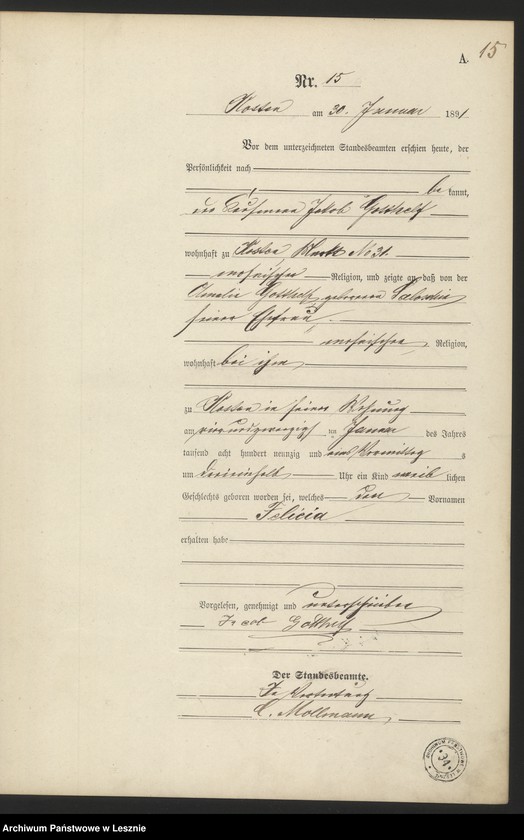 A.
15
Nr. 15
Kosten am 30. Januar 1891
Vor dem unterzeichneten Standesbeamten erschien heute, der
Persönlichkeit nach
be kannt,
der Kaufmann Jakob Gotthelf
wohnhaft zu Kosten Markt No 31.
mosaischer Religion, und zeigte an, daß von der
Amalie Gotthelf geborene
seiner Ehefrau
mosaischer Religion,
wohnhaft bei ihm
zu Kosten in seiner Wohnung
am vier und zwanzigsten Januar des Jahres
tausend acht hundert neunzig und eins Vormittag s
um Uhr ein Kind weib lichen
Geschlechts geboren worden sei, welches den Vornamen
Felicia
erhalten habe
Vorgelesen, genehmigt und unterschrieben
Jacob Gotthelf
Der Standesbeamte.
In Vertretung
C. Mollmann
ARCHIWUM PAŃSTWOWE W LESZNIE
34
Archiwum Państwowe w Lesznie